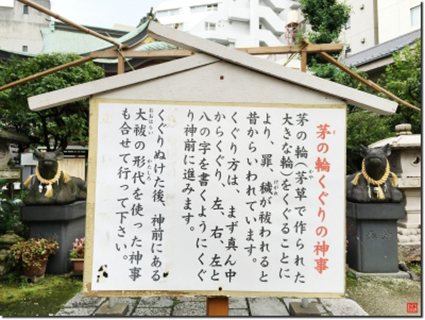 茅の輪くぐりの神事
茅の輪(茅草で作られた
かや
大きな輪)をくぐることに
より、罪穢が祓われると
けがれ
昔からいわれています。
くぐり方は、まず真ん中
からくぐり、左、右、左と
八の字を書くようにくぐ
り神前に進みます。
くぐりぬけた後、神前にある
大祓の形代を使った神事
おおはらい
かたしろ
も合せて行って下さい。